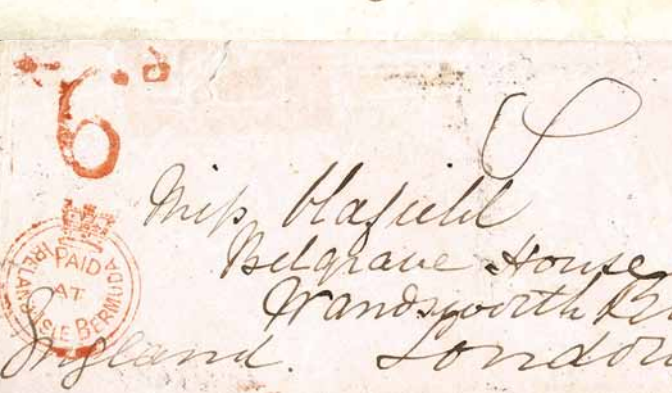 6d
PAID
AT
IRELAND ISLE BERMUDA
Miss
Belgrave House
Wandsworth
England. London